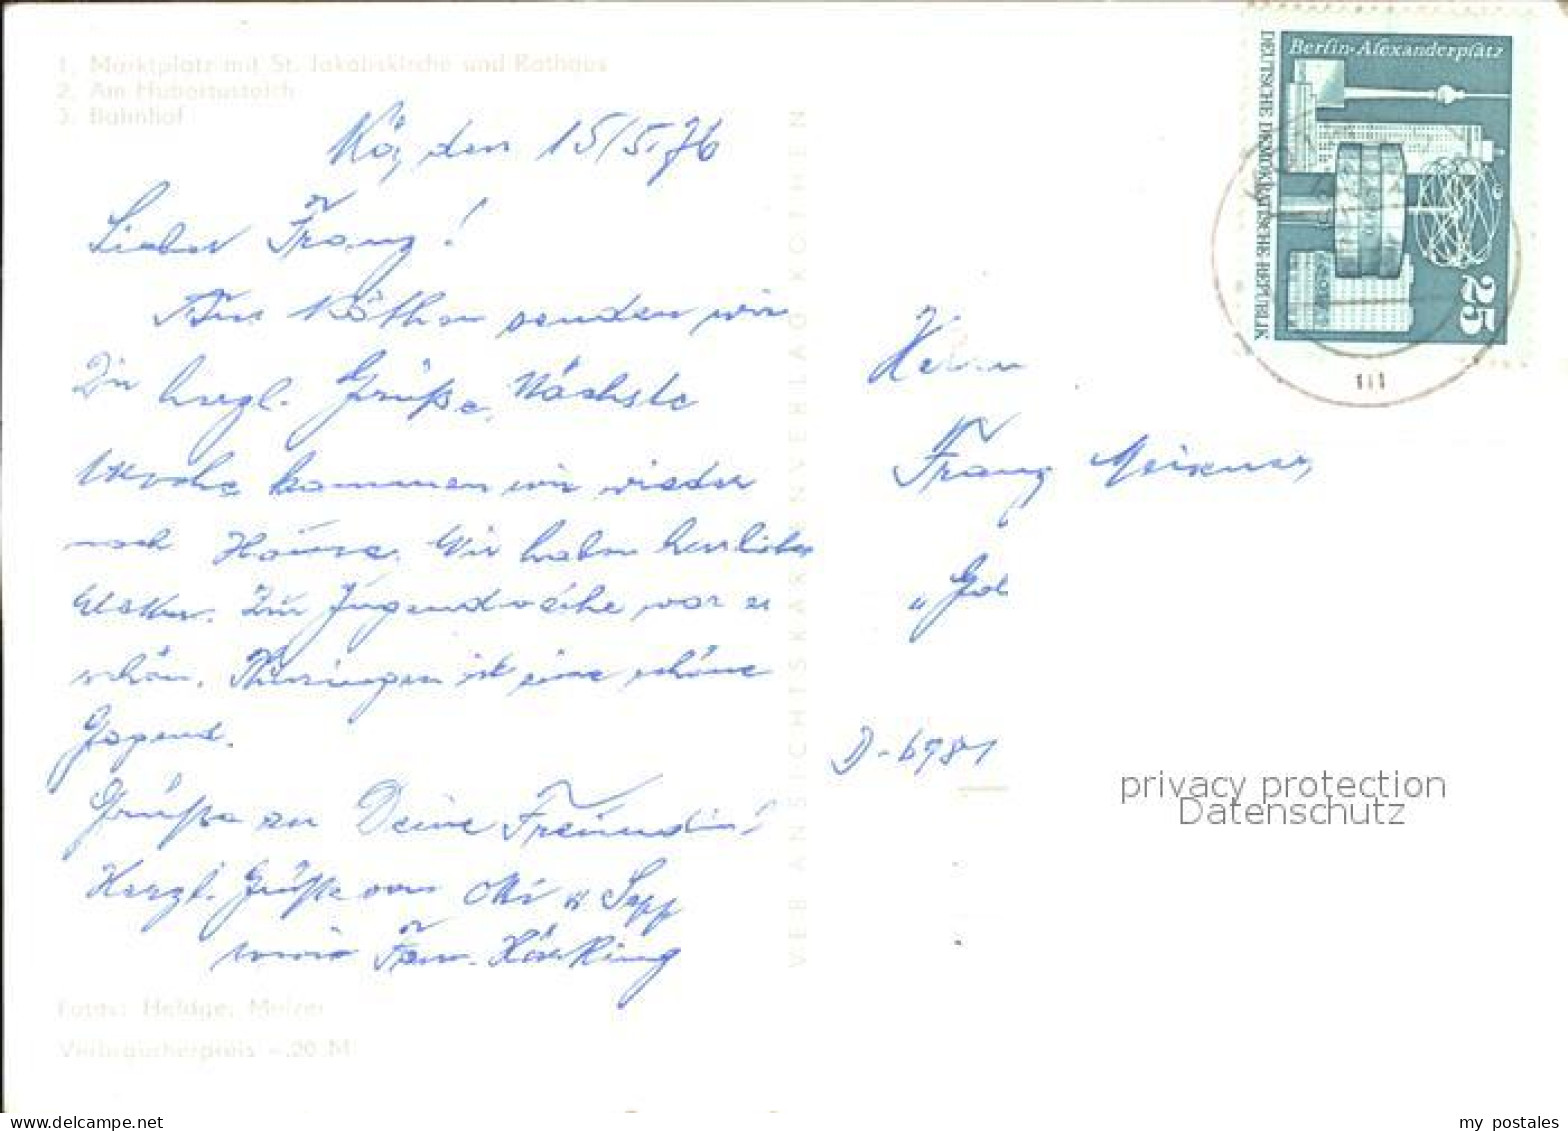 1. Marktplatz mit St. Jakobskirche und Rathaus
2. Am Hubertusteich
3. Bahnhof
Kö, den 15/5.76
Lieber Franz!
Aus Köthen senden wir
Dir herzl. Grüße. Nächste
Woche kommen wir wieder
nach Hause. Wir haben herrliches
Wetter. Zur Jugendweihe war es
schön. Thüringen ist eine schöne
Gegend.
Grüße an Deine Freundin!
Herzl. Grüße von u. Sepp
sowie Fam.
Fotos: Heldge, Melzer
Verbraucherpreis -,20 M
VEB ANSICHTSKARTENVERLAG KÖTHEN
Berlin-Alexanderplatz
DEUTSCHE DEMOKRATISCHE REPUBLIK
25
Herrn
Franz
D-6981
privacy protection
Datenschutz
delcampe.net
my_postales